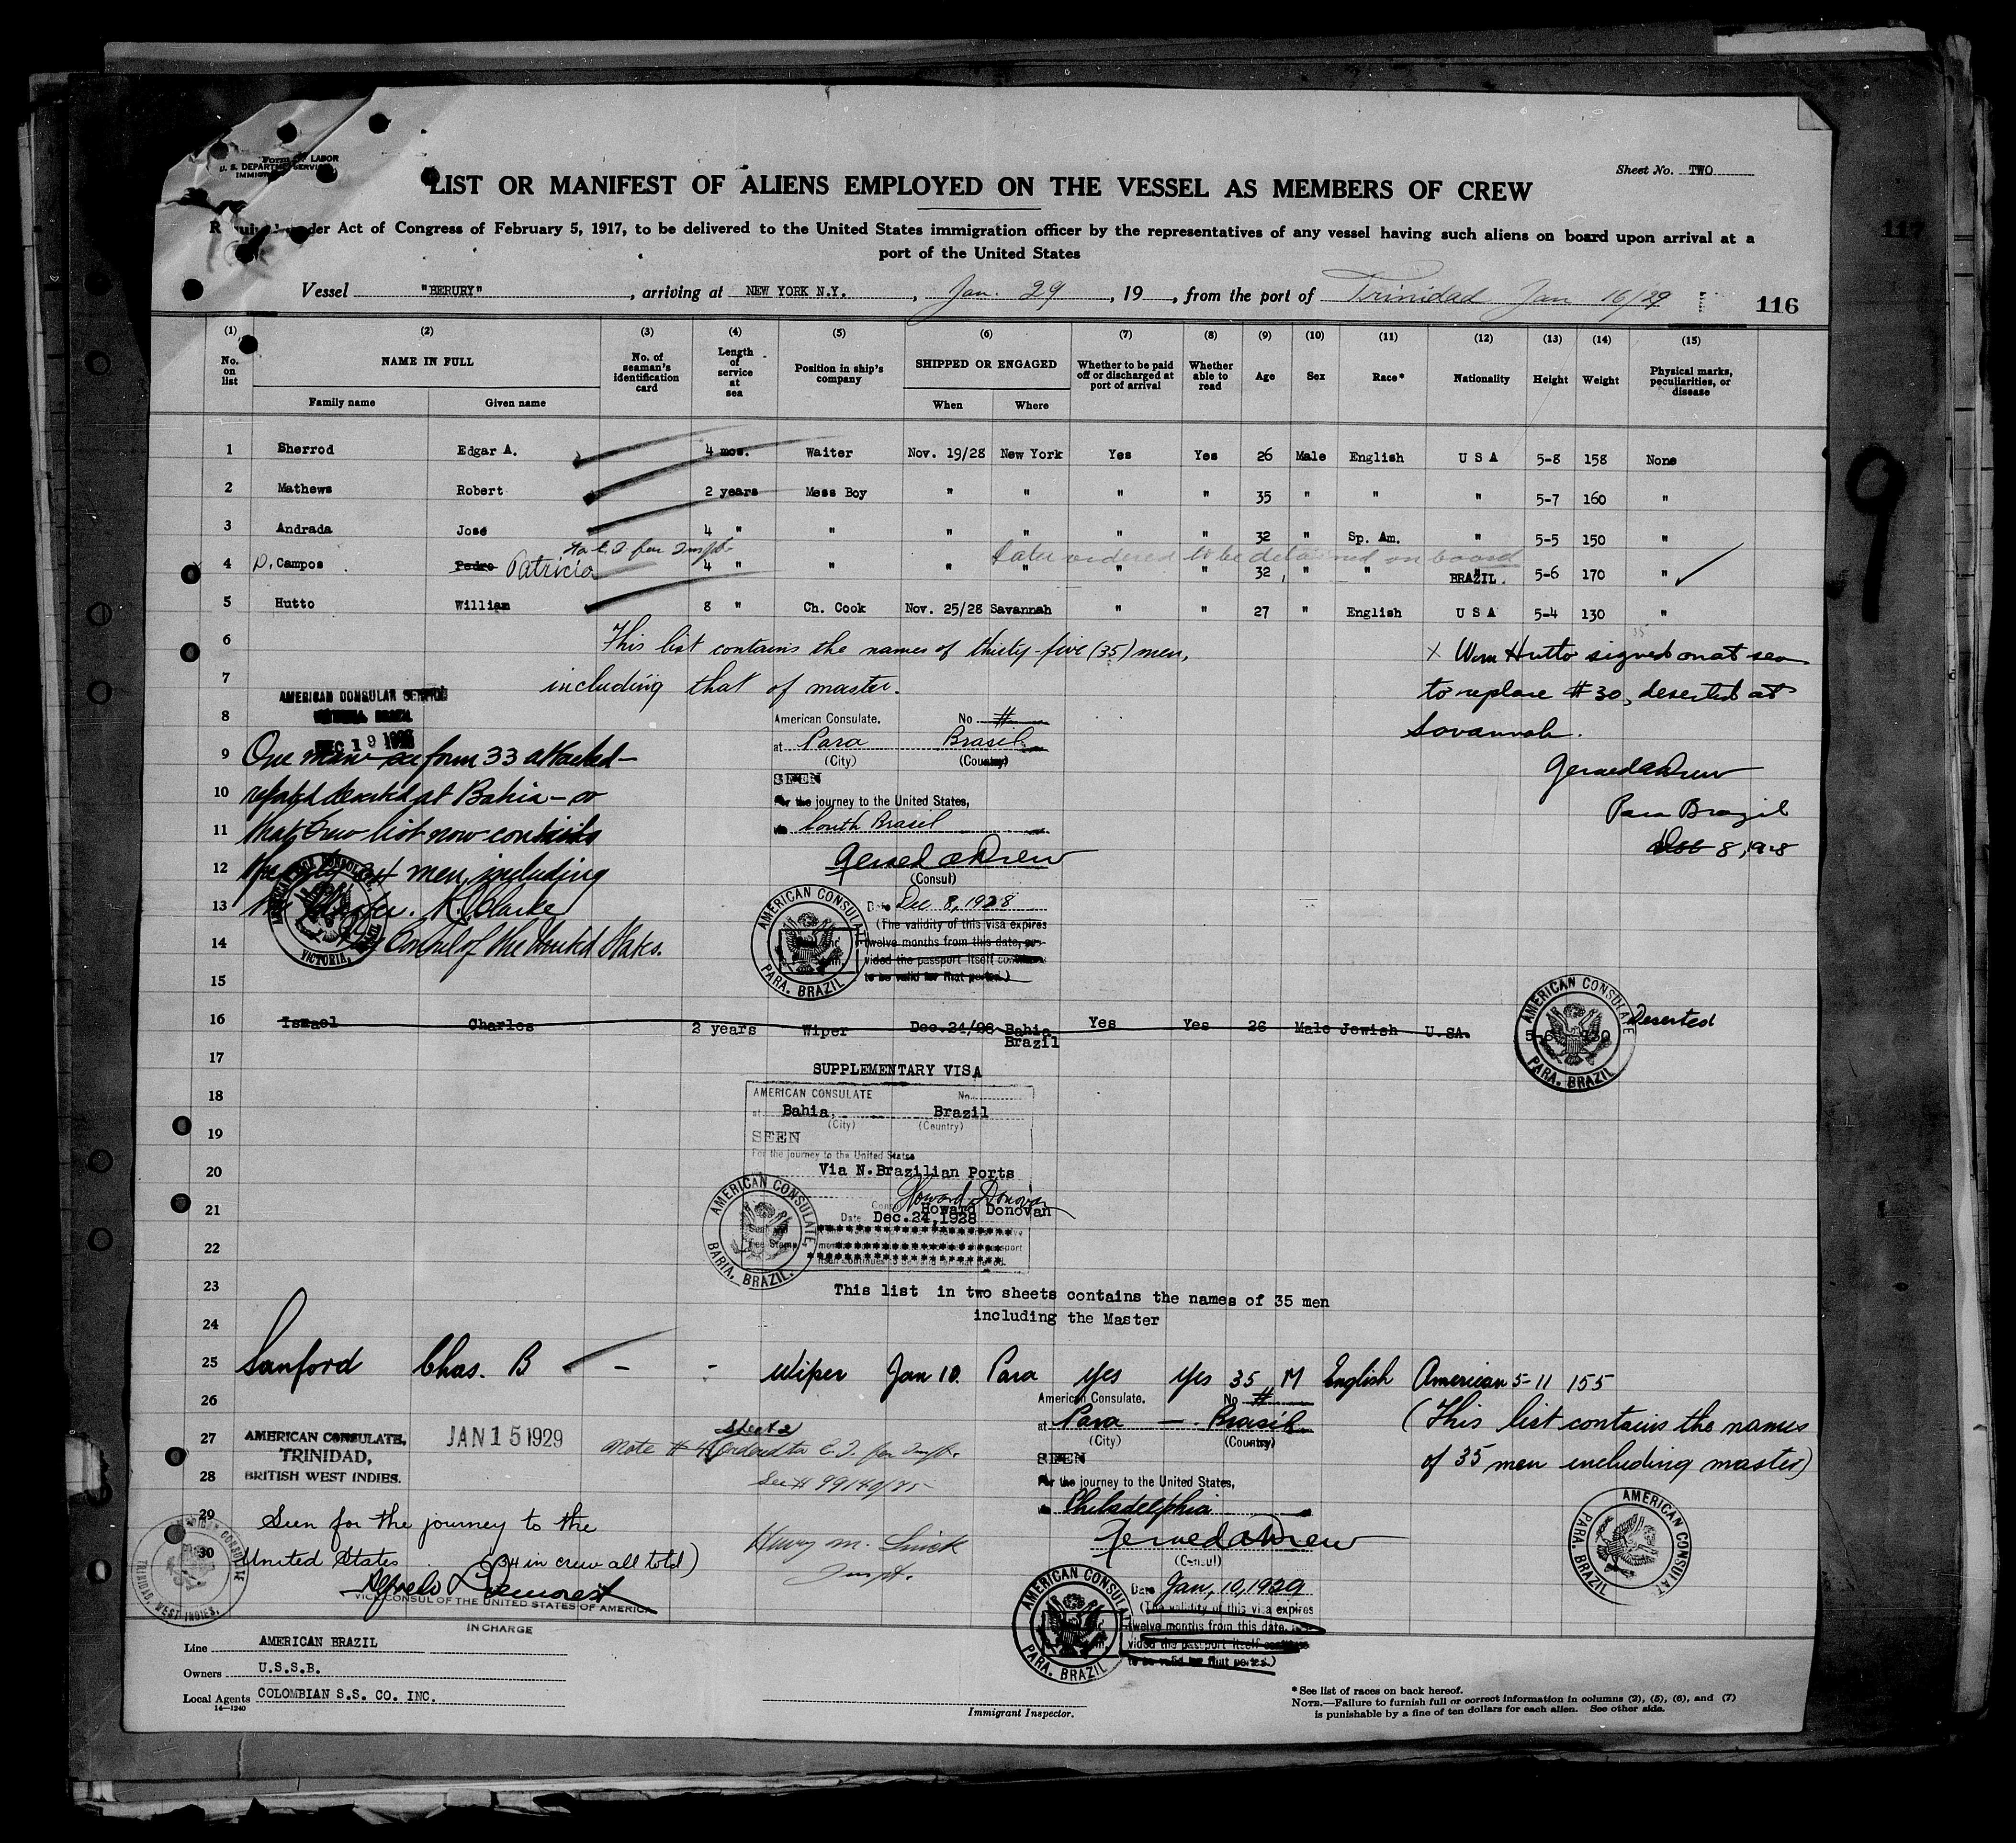 Form
U. S. DEPARTMENT LABOR
IMMIGRATION SERVICE
Sheet No. TWO
LIST OR MANIFEST OF ALIENS EMPLOYED ON THE VESSEL AS MEMBERS OF CREW
Required under Act of Congress of February 5, 1917, to be delivered to the United States immigration officer by the representatives of any vessel having such aliens on board upon arrival at a
port of the United States
Vessel "BERURY", arriving at NEW YORK N.Y., Jan. 29, 19, from the port of Trinidad Jan 16/29
116
117
9
(1) No. on list
(2) NAME IN FULL Family name Given name
(3) No. of seaman's identification card
(4) Length of service at sea
(5) Position in ship's company
(6) SHIPPED OR ENGAGED When Where
(7) Whether to be paid off or discharged at port of arrival
(8) Whether able to read
(9) Age
(10) Sex
(11) Race*
(12) Nationality
(13) Height
(14) Weight
(15) Physical marks, peculiarities, or disease
1 Sherrod Edgar A. 4 mos. Waiter Nov. 19/28 New York Yes Yes 26 Male English U S A 5-8 158 None
2 Mathews Robert 2 years Mess Boy " " " " 35 " " " 5-7 160 "
3 Andrada José 4 " " " " " " 32 " Sp. Am. " 5-5 150 "
to E.I. for Insp.
Later ordered to be detained on board
4 D. Campos Pedro Patricio 4 " " " " " " 32 " " BRAZIL. 5-6 170 "
5 Hutto William 8 " Ch. Cook Nov. 25/28 Savannah " " 27 " English U S A 5-4 130 "
6
This list contains the names of thirty-five (35) men,
including that of master.
X Wm Hutto signed on at sea
to replace #30, deserted at
Savannah.
Gerald A Drew
Para Brazil
Dec 8, 1928
7
AMERICAN CONSULAR SERVICE
VICTORIA BRAZIL
DEC 19 1928
8
9 One man see form 33 attached—
10 deserted at Bahia — so
11 that crew list now contains
12 men including
13 the Master. Clarke
14 Consul of the United States.
VICTORIA,
American Consulate. No #
at Para Brasil
(City) (Country)
SEEN
For the journey to the United States,
via South Brasil
Gerald A Drew
(Consul)
Date Dec 8, 1928
(The validity of this visa expires
twelve months from this date, pro-
vided the passport itself continues
to be valid for that period.)
AMERICAN CONSULATE
PARA, BRAZIL
15
16 Ismael Charles 2 years Wiper Dec. 24/28 Bahia Brazil Yes Yes 26 Male Jewish U.SA. 5-6 130 Deserted
AMERICAN CONSULATE
PARA. BRAZIL
17
SUPPLEMENTARY VISA
18
AMERICAN CONSULATE No.
at Bahia, Brazil
(City) (Country)
19
SEEN
For the journey to the United States
20
Via N.Brazilian Ports
Howard Donovan
21
Howard Donovan
Date Dec.24,1928
22
AMERICAN CONSULATE,
BAHIA, BRAZIL.
23
This list in two sheets contains the names of 35 men
including the Master
24
25 Sanford Chas. B - - Wiper Jan 10. Para yes yes 35 M English American 5-11 155
26
(This list contains the names
of 35 men including master)
27
28
AMERICAN CONSULATE,
TRINIDAD,
BRITISH WEST INDIES.
JAN 15 1929
sheet 2
Note #4 Ordered to E.I. for Insp.
See # 99140/75
Henry M.
Insp.
American Consulate. No #
at Para — Brasil
(City) (Country)
SEEN
For the journey to the United States,
via Philadelphia
Gerald A Drew
(Consul)
Date Jan, 10, 1929
(The validity of this visa expires
twelve months from this date, pro-
vided the passport itself continues
to be valid for that period.)
AMERICAN CONSULATE
PARA, BRAZIL
AMERICAN CONSULAT
PARA. BRAZIL
29
30
Seen for the journey to the
United States (34 in crew all told)
Alfredo L Demorest
VICE CONSUL OF THE UNITED STATES OF AMERICA
IN CHARGE
AMERICAN CONSULATE
TRINIDAD, WEST INDIES.
Line AMERICAN BRAZIL
Owners U.S.S.B.
Local Agents COLOMBIAN S.S. CO. INC.
14—1240
Immigrant Inspector.
*See list of races on back hereof.
NOTE.—Failure to furnish full or correct information in columns (2), (5), (6), and (7)
is punishable by a fine of ten dollars for each alien. See other side.